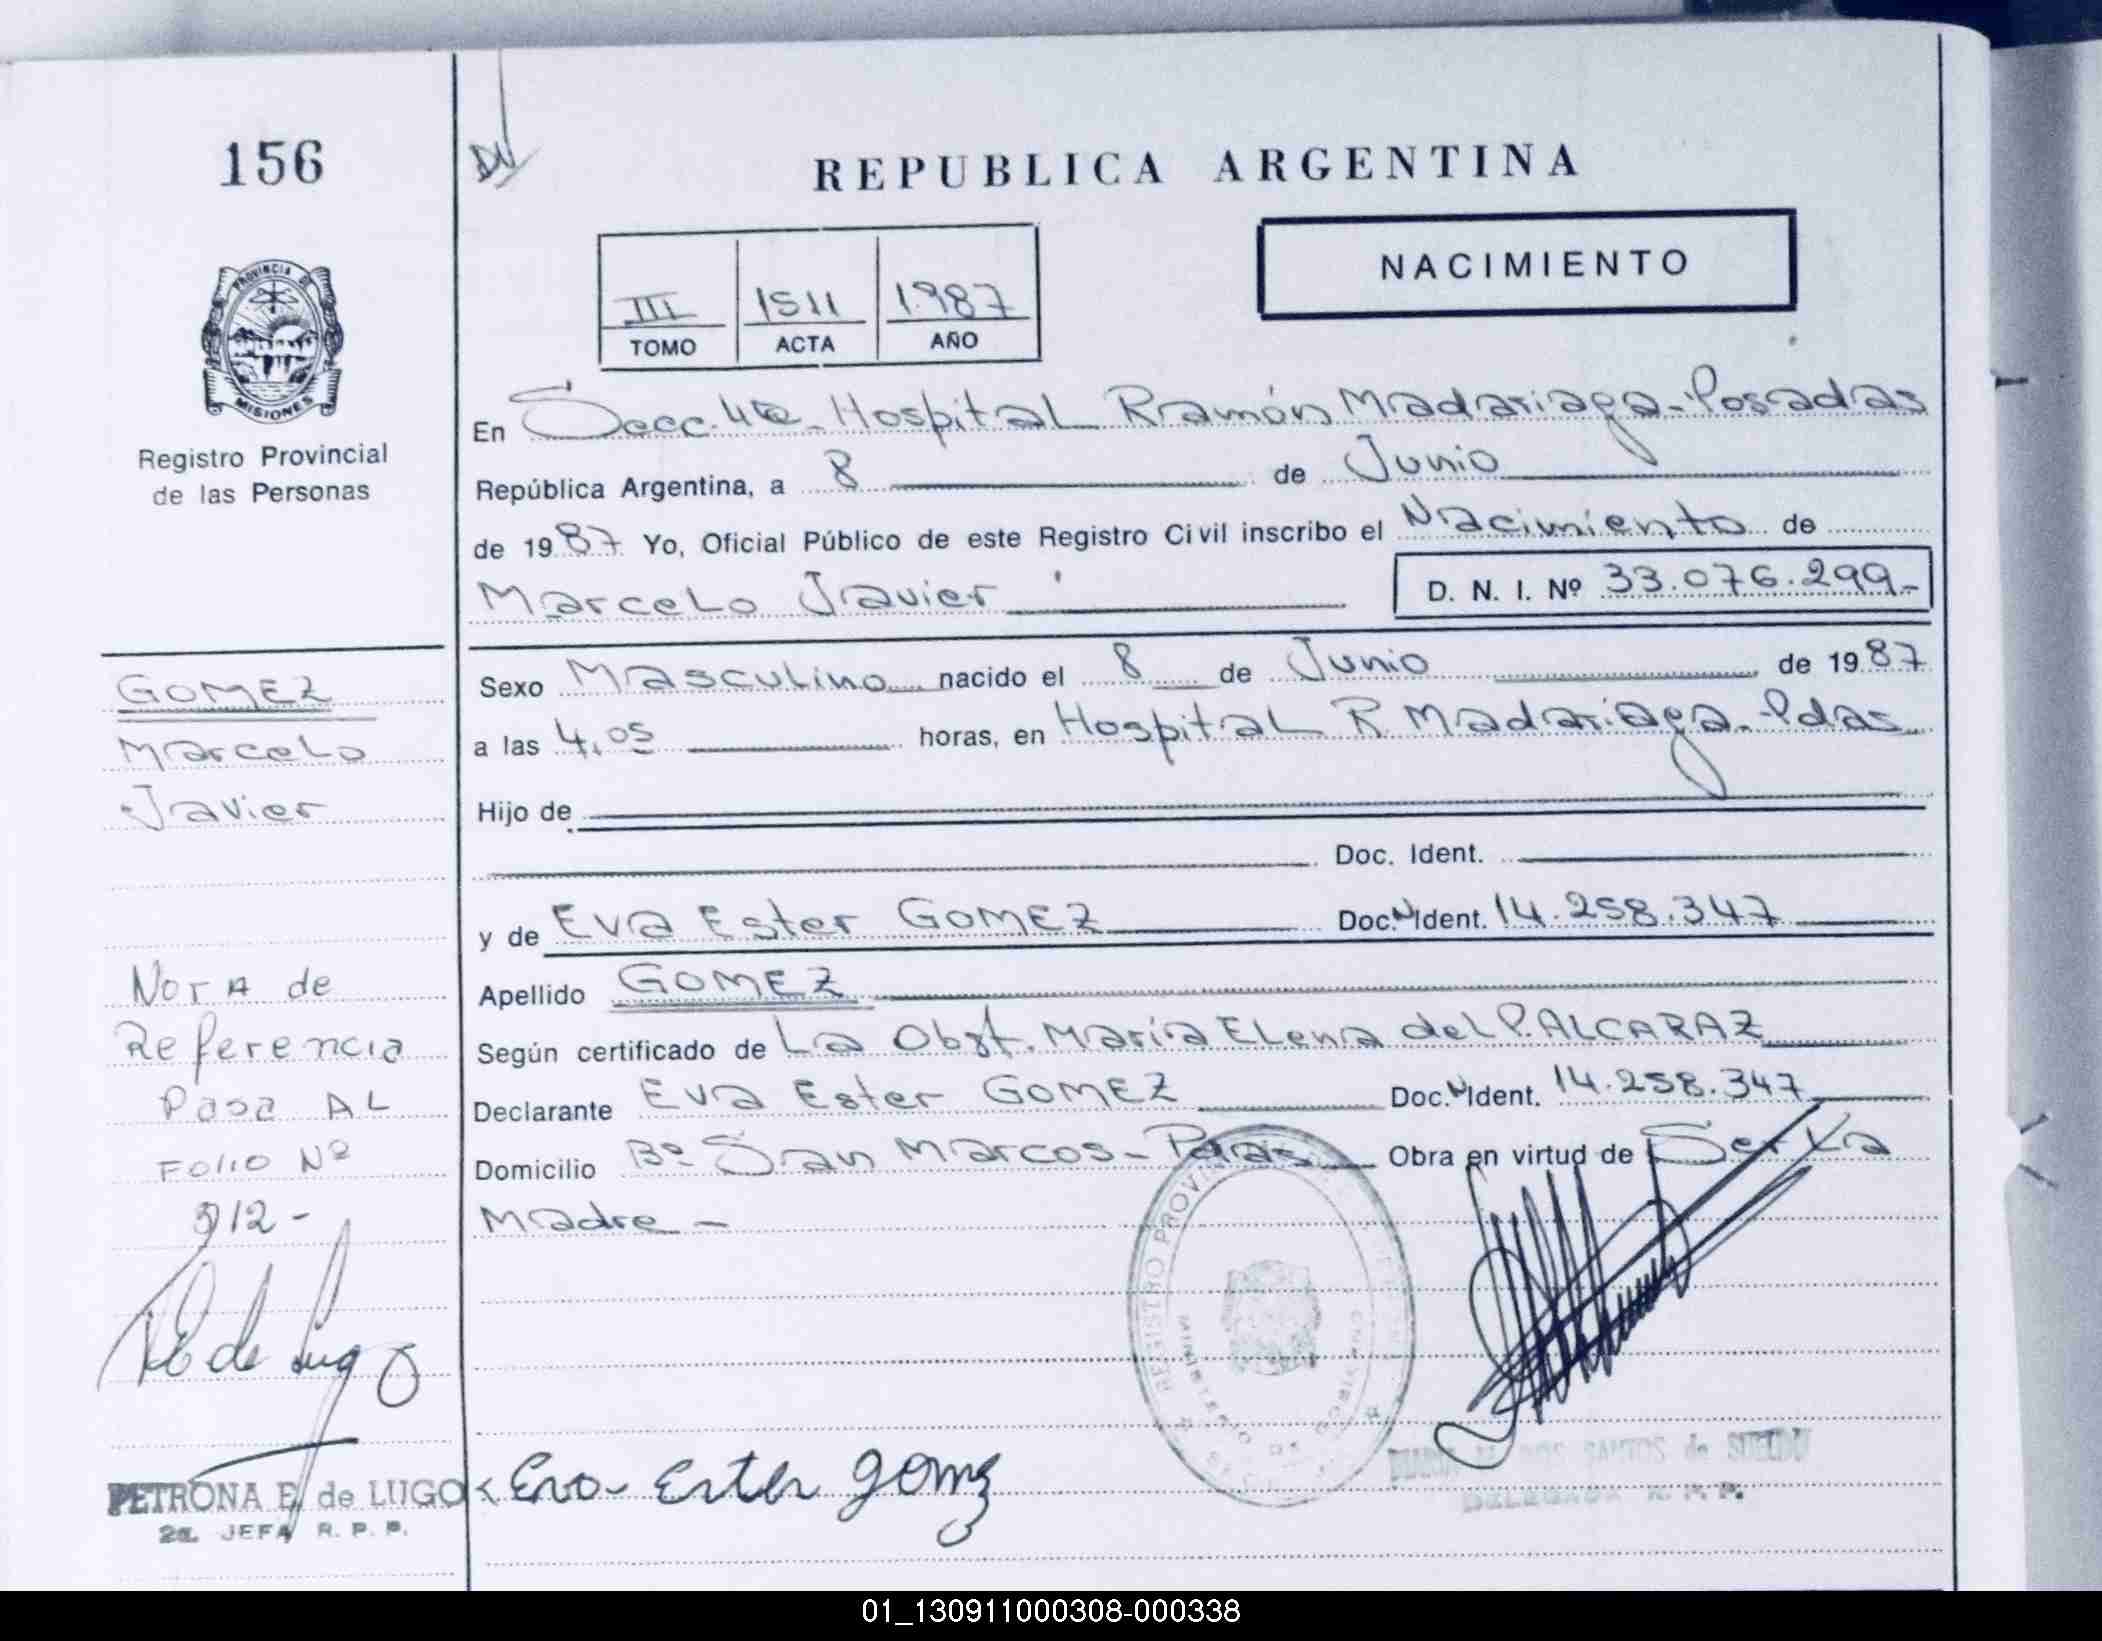 156
REPUBLICA ARGENTINA
NACIMIENTO
III 1511 1987
TOMO ACTA AÑO
PROVINCIA DE
MISIONES
Registro Provincial
de las Personas
En Secc. 4ta - Hospital Ramón Madariaga - Posadas
República Argentina, a 8 de Junio
de 1987 Yo, Oficial Público de este Registro Civil inscribo el Nacimiento de
Marcelo Javier
D. N. I. Nº 33.076.299-
GOMEZ
Marcelo
Javier
Sexo Masculino nacido el 8 de Junio de 1987
a las 4,05 horas, en Hospital R Madariaga - Pdas
Hijo de
Doc. Ident.
y de Eva Ester GOMEZ Doc. N Ident. 14.258.347
Apellido GOMEZ
Según certificado de La Obst. María Elena del P. ALCARAZ
Declarante Eva Ester GOMEZ Doc. N Ident. 14.258.347
Domicilio Bº San Marcos - Pdas Obra en virtud de Ser La
Madre -
Nota de
Referencia
Pasa AL
Folio Nº
912 -
P E de Lugo
PETRONA E. de LUGO
2a. JEFA R. P. P.
Eva Ester Gomez
REGISTRO PROVINCIAL
MINISTERIO DE
DOS SANTOS de SUELDO
DELEGADA R. P. P.
01_130911000308-000338